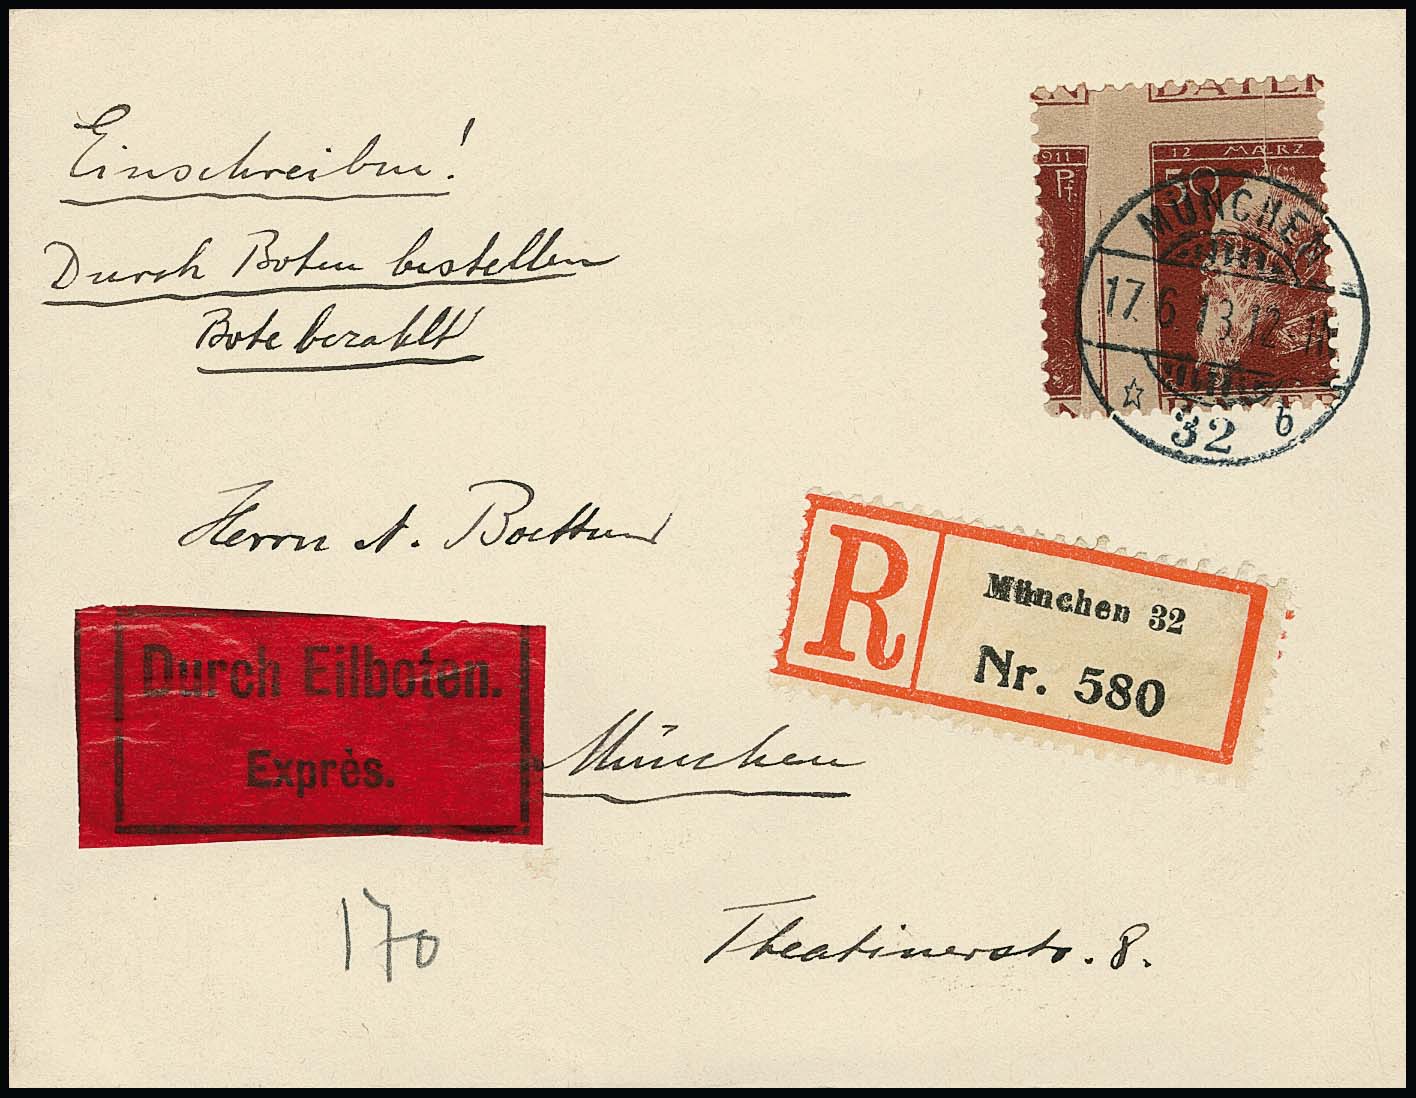 Einschreiben!
Durch Boten bestellen
Bote bezahlt
BAYERN
1911
Pf
12 MÆRZ
50
MÜNCHEN
17.6.13.12-1N
32 b
Herrn A.
R
München 32
Nr. 580
Durch Eilboten.
Exprès.
München
170
Theatinerstr. 8.